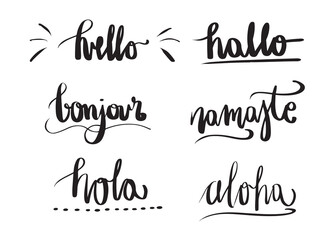 hello
hallo
bonjour
namaste
hola
aloha